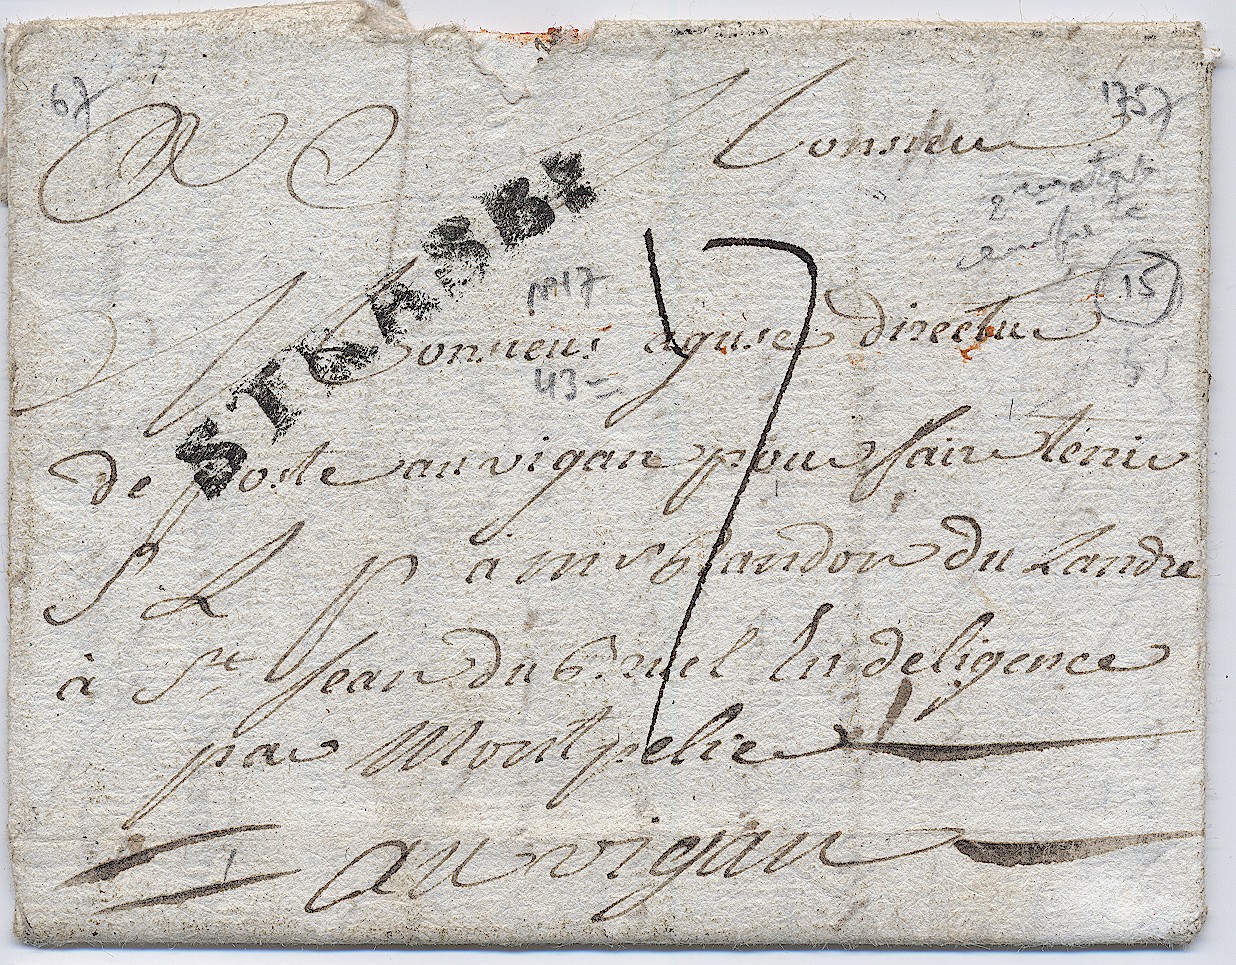 67
1757
A Monsieur
STRASB
15
n°17
Monsieur aguse directeur
43-
de poste auvigan pour faire tenir
S L P a mr blandon du Landre
à St Jean du bruel En deligence
par Montpelier
au vigan